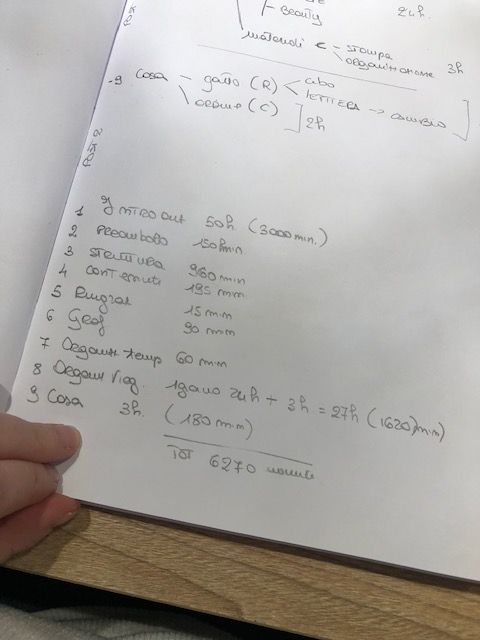 Beauty 24h.
materiali < stampa
organizzazione 3h
9 Casa - gatto (R) < cibo
LETTIERA → cambio
ordine (C) ] 2h
1 Introduz 50h. (3000 min.)
2 150 min.
3 STESURA 960 min
4 contenuti 195 min
5 Ringraz 15 min
6 Graf 90 min
7 Organizz temp 60 min
8 Organizz Viag. 1 giorno 24h + 3h = 27h (1620) min)
9 Casa 3h. (180 min)
TOT 6270 minuti